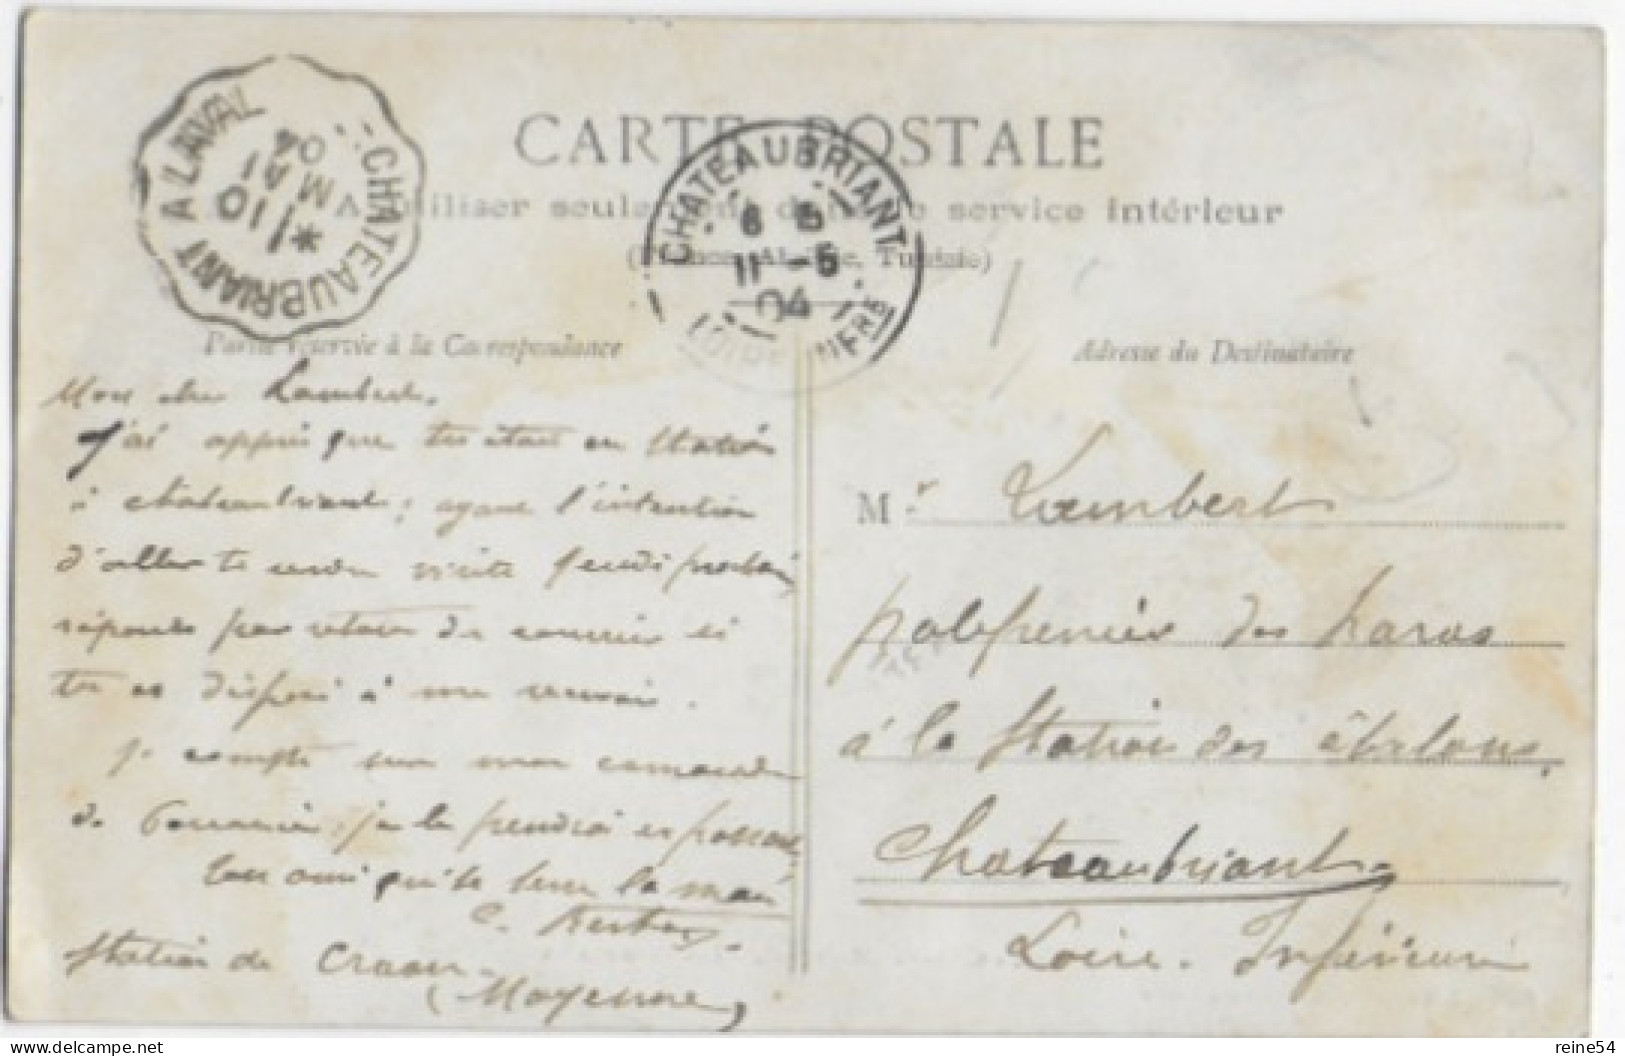 CARTE POSTALE
A utiliser seulement dans le service intérieur
(France, Algérie, Tunisie)
CHATEAUBRIANT A LAVAL
10 MAI 04
CHATEAUBRIANT
6 5
11 -5
04
LOIRE INFRE
Partie réservée à la Correspondance
Mon cher Lambert,
J'ai appris que tu étais en Station
à chateaubriant ; ayant l'intention
d'aller te rendre visite jeudi prochain
réponds par retour du courrier si
tu es disposé à me recevoir.
je compte sur mon camarade
de ; je le prendrai en passant
Ton ami qui te serre la main
Station de Craon
(Mayenne)
Adresse du Destinataire
Mr Lambert
palefrenier des haras
à la Station des étalons,
Chateaubriant
Loire-Inférieure
reine54